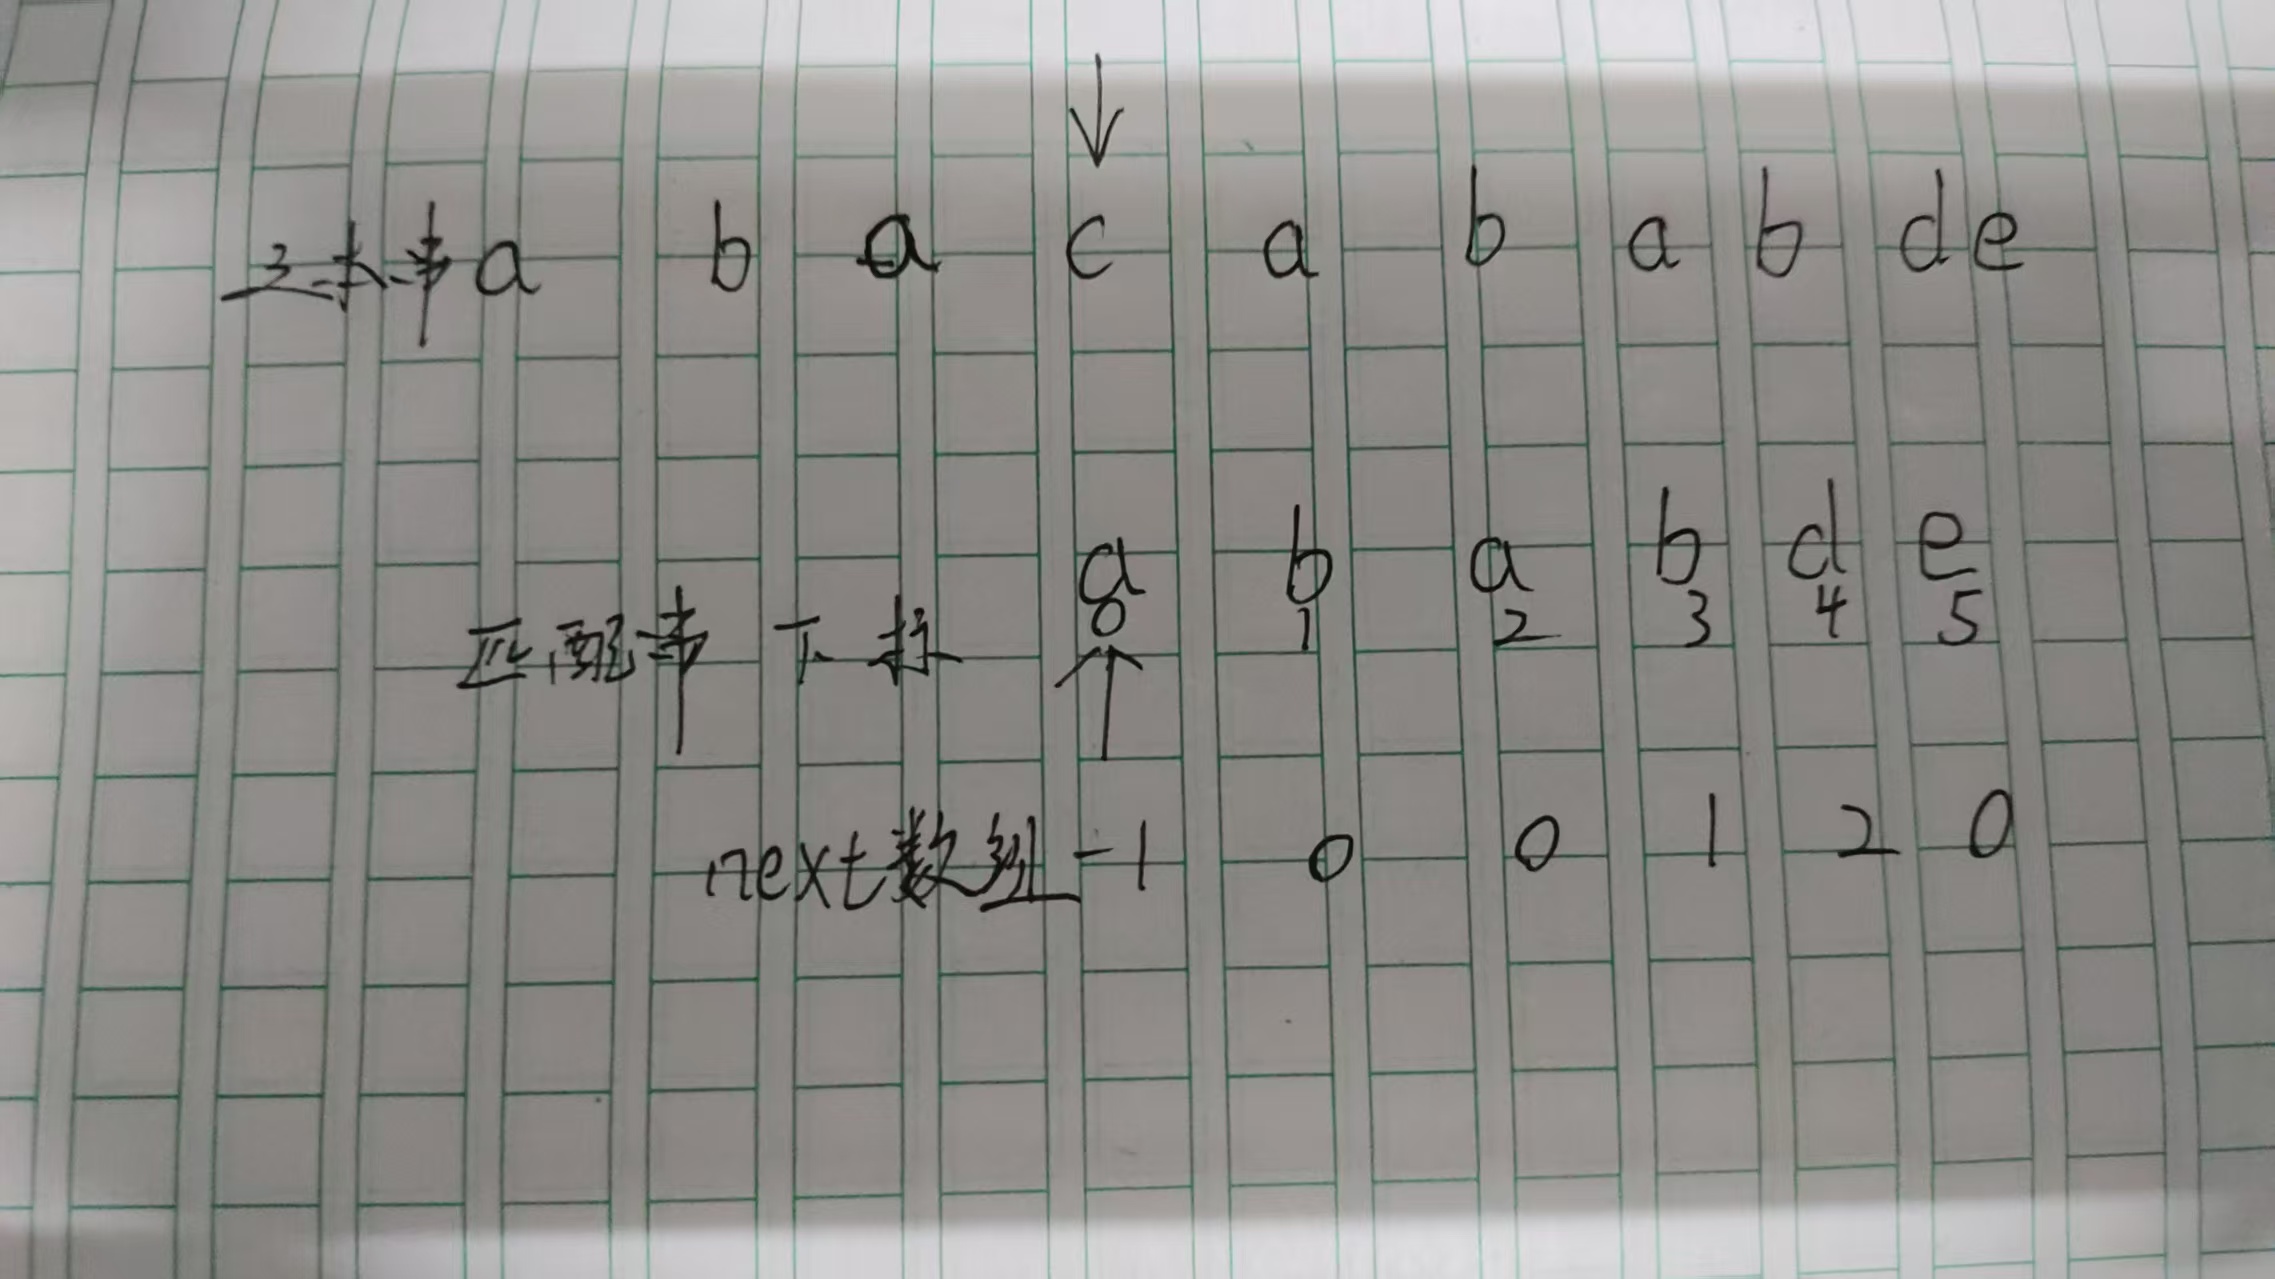 文本串 a b a c a b a b d e
a b a b d e
匹配串 下标 0 1 2 3 4 5
next数组 -1 0 0 1 2 0